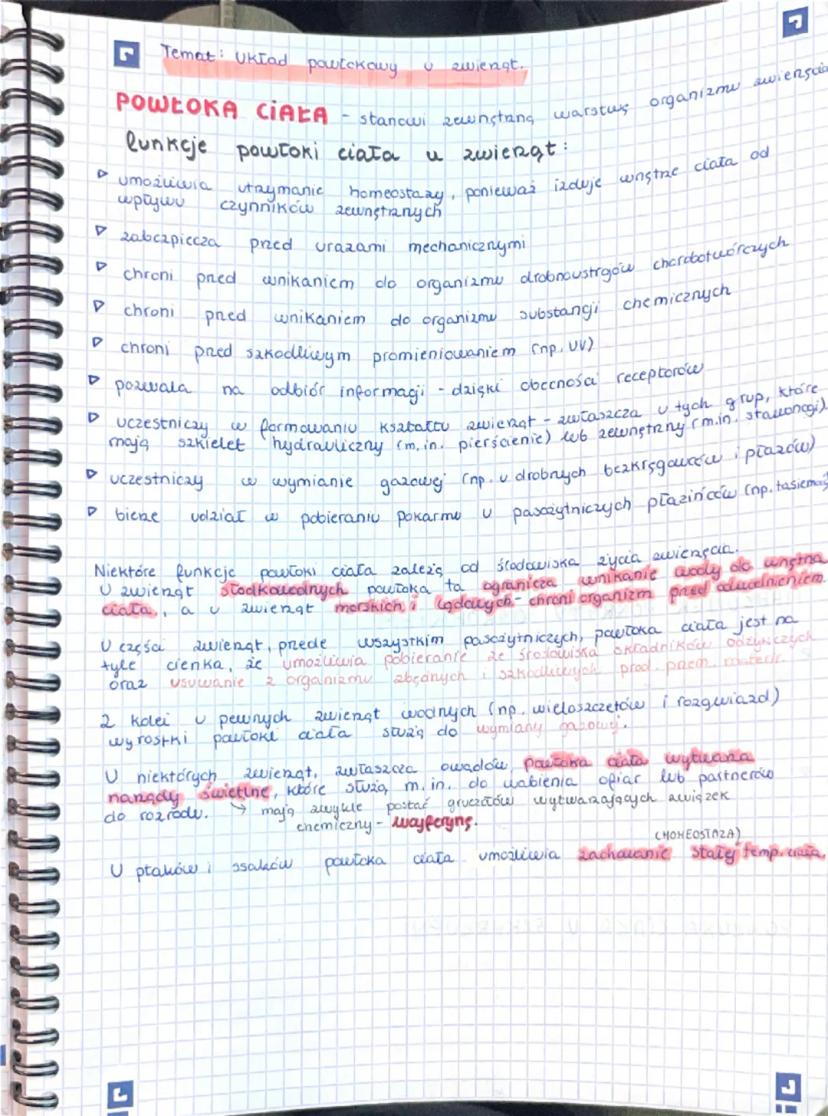 Temat: Układ powłokowy u zwierząt.
POWŁOKA CIAŁA - stanowi zewnętrzną warstwę organizmu zwierzęcia
funkcje powłoki ciała u zwierząt:
▷ umożliwia utrzymanie homeostazy, ponieważ izoluje wnętrze ciała od
wpływu czynników zewnętrznych
▷ zabezpiecza przed urazami mechanicznymi
▷ chroni przed wnikaniem do organizmu drobnoustrojów chorobotwórczych
▷ chroni przed wnikaniem do organizmu substancji chemicznych
▷ chroni przed szkodliwym promieniowaniem (np. UV)
▷ pozwala na odbiór informacji - dzięki obecności receptorów
▷ uczestniczy w formowaniu kształtu zwierząt - zwłaszcza u tych grup, które
mają szkielet hydrauliczny (m.in. pierścienie) lub zewnętrzny (m.in. stawonogi).
▷ uczestniczy w wymianie gazowej (np. u drobnych bezkręgowców i płazów)
▷ bierze udział w pobieraniu pokarmu u pasożytniczych płazińców (np. tasiemiec)
Niektóre funkcje powłoki ciała zależą od środowiska życia zwierzęcia.
U zwierząt słodkowodnych powłoka ta ogranicza wnikanie wody do wnętrza
ciała, a u zwierząt morskich i lądowych - chroni organizm przed odwodnieniem.
U części zwierząt, przede wszystkim pasożytniczych, powłoka ciała jest na
tyle cienka, że umożliwia pobieranie ze środowiska składników odżywczych
oraz usuwanie z organizmu zbędnych i szkodliwych prod. przem. materii.
Z kolei u pewnych zwierząt wodnych (np. wieloszczetów i rozgwiazd)
wyrostki powłoki ciała służą do wymiany gazowej.
U niektórych zwierząt, zwłaszcza owadów, powłoka ciała wytwarza
narządy świetlne, które służą m.in. do wabienia ofiar lub partnerów
do rozrodu. → mają zwykle postać gruczołów wytwarzających związek
chemiczny - lucyferynę.
(HOMEOSTAZA)
U ptaków i ssaków powłoka ciała umożliwia zachowanie stałej temp. ciała.